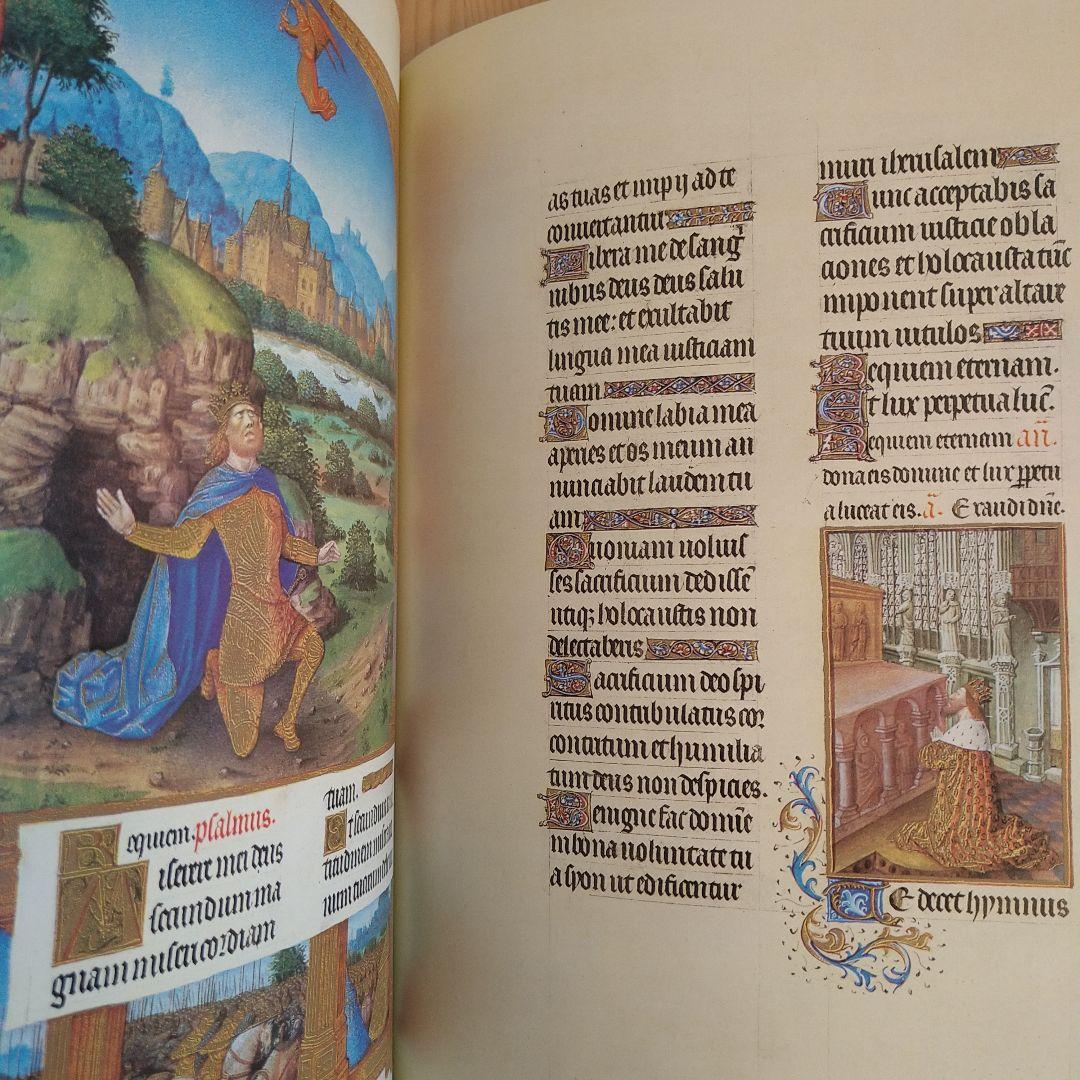 Requiem. psalmus.
Miserere mei deus
secundum ma
gnam misericordiam
tuam.
Et secundum
num tuarum
as tuas et impij ad te
convertantur
Libera me de sang̃
nibus deus deus salu
tis mee: et exultabit
lingua mea iusticiam
tuam
Domine labia mea
aperies et os meum an
nunciabit laudem tu
am
Quoniam voluis
ses sacrificium dedissẽ
utiqꝫ holocaustis non
delectaberis
Sacrificium deo spi
ritus contribulatus cor
contritum et humilia
tum deus non despicies.
Benigne fac domĩe
in bona voluntate tu
a syon ut edificentur
muri iherusalem
Tunc acceptabis sa
crificium iusticie obla
ciones et holocausta tũc
imponent super altare
tuum vitulos
Requiem eternam.
Et lux perpetua luc̃.
Requiem eternam añ.
dona eis domine et lux ꝑpetu
a luceat eis. a᷈. Exaudi dñe.
Te decet hymnus